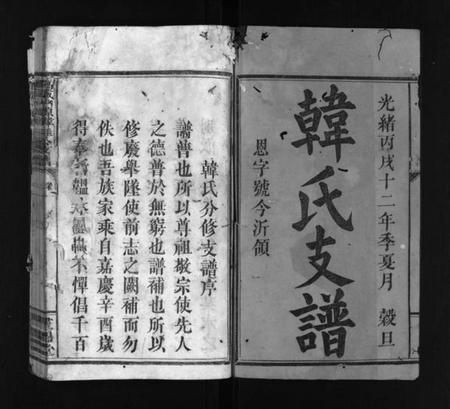 光緒丙戌十二年季夏月 穀旦
韓氏支譜
恩字號今沂領
韓氏分修支譜序
譜普也所以尊祖敬宗使先人
之德普於無窮也譜補也所以
修廢舉墜使前志之闕補而勿
佚也吾族家乘自嘉慶辛酉歲
得奉 憚倡千百